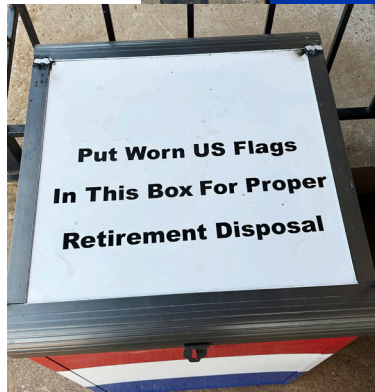 Put Worn US Flags
In This Box For Proper
Retirement Disposal